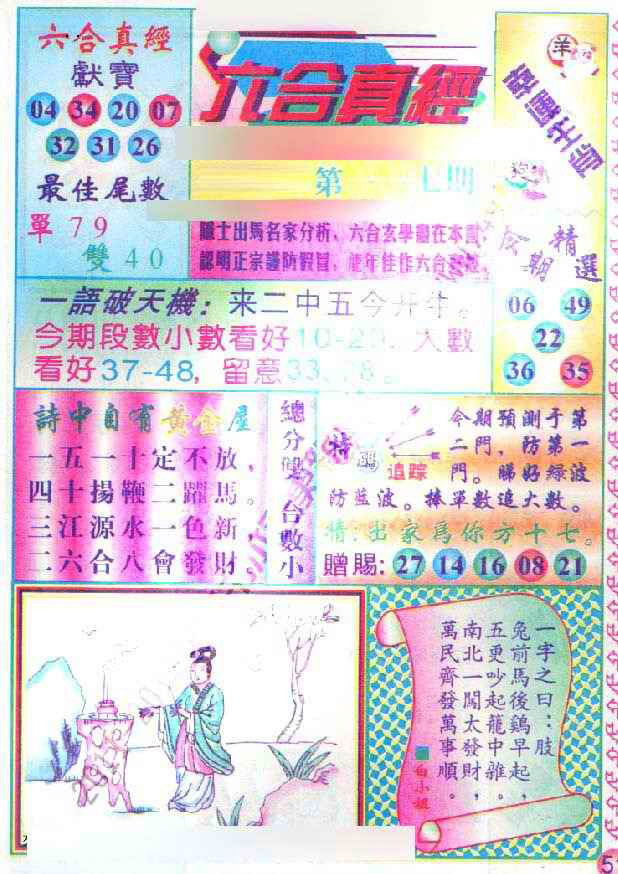 六合真經
獻寶
04 34 20 07
32 31 26
最佳尾數
單79
雙40
六合真經
第
期
羊
士出馬名家分析，六合玄學盡在本書，
認明正宗謹防假冒，
精選
06 49
22
36 35
一語破天機：来二中五今开牛。
今期段數小數看好10-2 ，大數
看好37-48，留意33
詩中自有黃金屋
一五一十定不放，
四十揚鞭二躍馬。
三江源水一色新，
二六合八會發財。
總分 雙
合數小
特碼
追踪
今期預測于第
二門，防第一
門。睇好綠波
防藍波。捧單數追大數。
猜：出家為你方十七。
贈賜：27 14 16 08 21
一字之曰：肢
兔前馬後鷄早起，
五更吵起龍中雜。
南北一闖太發財，
萬民齊發萬事順。
白小姐
5